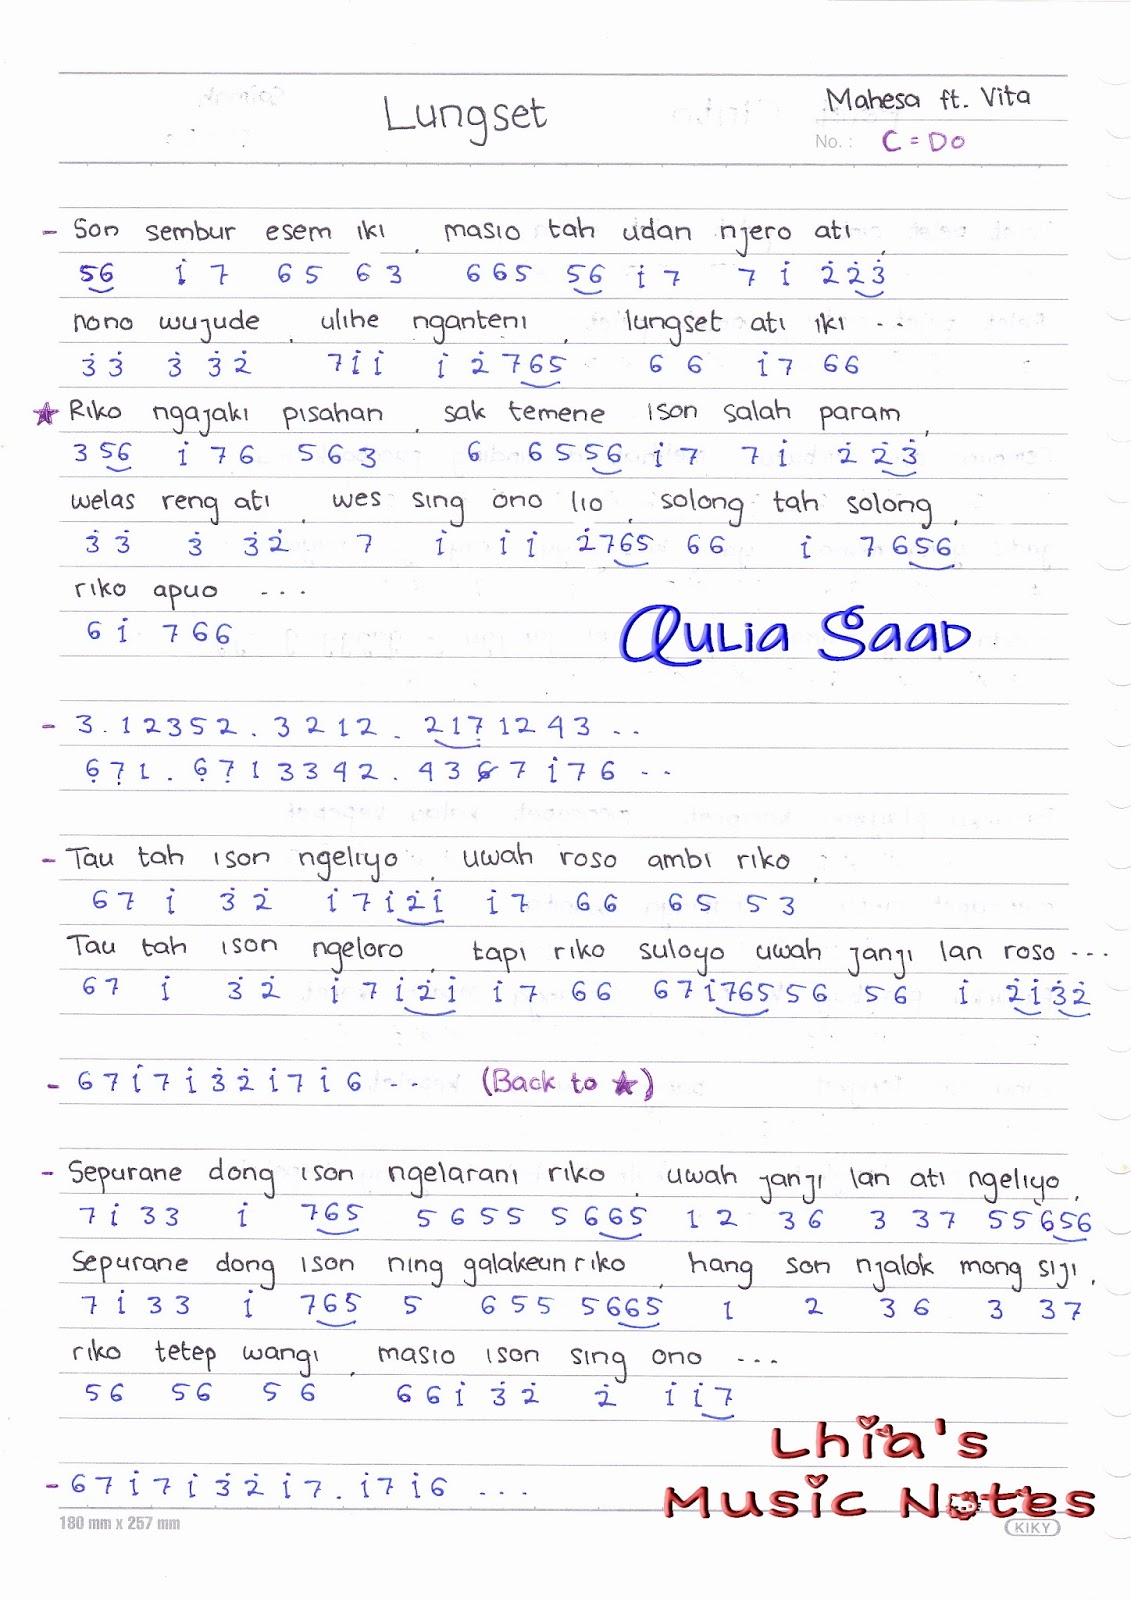 Lungset
Mahesa ft. Vita
No. : C = Do
- Son sembur esem iki, masio tah udan njero ati,
56 i̇ 7 65 63 665 56 i̇ 7 7 i̇ 2̇2̇3̇
nono wujude, ulihe nganteni, lungset ati iki ...
3̇3̇ 3̇ 3̇2̇ 7i̇i̇ i̇ 2̇765 6 6 i̇7 66
★ Riko ngajaki pisahan, sak temene ison salah param,
356 i̇76 563 6 6556 i̇7 7i̇ 2̇ 2̇3̇
welas reng ati, wes sing ono lio, solong tah solong,
3̇3̇ 3̇ 3̇2̇ 7 i̇ i̇i̇ 2̇765 66 i̇ 7656
riko apuo ...
6i̇ 766
Qulia Saad
- 3.12352.3212.2171243..
6̣7̣1.6̣7̣13342.4367i̇76 ..
- Tau tah ison ngeliyo, uwah roso ambi riko,
67 i̇ 3̇2̇ i̇7i̇2̇i̇ i̇7 66 65 53
Tau tah ison ngeloro, tapi riko suloyo uwah janji lan roso ...
67 i̇ 3̇2̇ i̇7i̇2̇i̇ i̇7 66 67i̇76556 56 i̇ 2̇i̇3̇2̇
- 67i̇7i̇3̇2̇i̇7i̇6 .. (Back to ★)
- Sepurane dong ison ngelarani riko, uwah janji lan ati ngeliyo,
7i̇33 i̇ 765 5655 5665 12 36 3 37 55656
Sepurane dong ison ning galakeun riko, hang son njalok mong siji,
7i̇33 i̇ 765 5 655 5665 1 2 36 3 37
riko tetep wangi, masio ison sing ono ...
56 56 56 66i̇ 3̇2̇ 2̇ i̇i̇7
Lhia's
Music Notes
- 67i̇7i̇3̇2̇i̇7.i̇7i̇6 ...
180 mm x 257 mm
KIKY